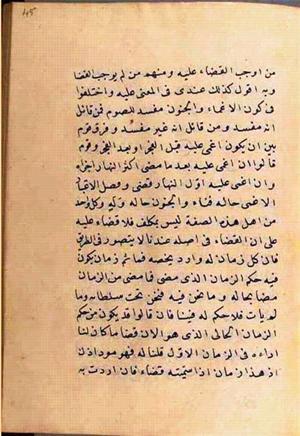 من اوجب القضاء عليه ومنهم من لم يوجب القضا
وبه اقول كذلك عندى فى المغمى عليه واختلفوا
فى كون الاغماء والجنون مفسد للصوم فمن قائل
انه مفسد ومن قائل انه غير مفسد وفرق قوم
بين ان يكون اغمى عليه قبل الفجر او بعد الفجر وقوم
قالوا ان اغمى عليه بعد ما مضى اكثر النهار اجزاه
وان اغمى عليه اول النهار قضى وصل الاغما
الاغمى حالة فناء والجنون حالة وله وكل واحد
من اهل هذه الصفة ليس بمكلف فلا قضاء عليه
على ان القضاء فى اصله عندنا لا يتصور فى الطريق
فان كل زمان له وارد يخصه فما ثم زمان يكون
فيه حكم الزمان الذى مضى فما مضى من الزمان
مضا بحاله وما نحن فيه فنحن تحت سلطانه وما
لم يات فلا حكم له فينا فان قالوا قد يكون من حكم
الزمان الحالى الذى هو الان قضا ما كان لنا
اداءه فى الزمان الاول قلنا له فهو مود اذن
اذ هذا زمان اداء سميته قضاء فان اردت به